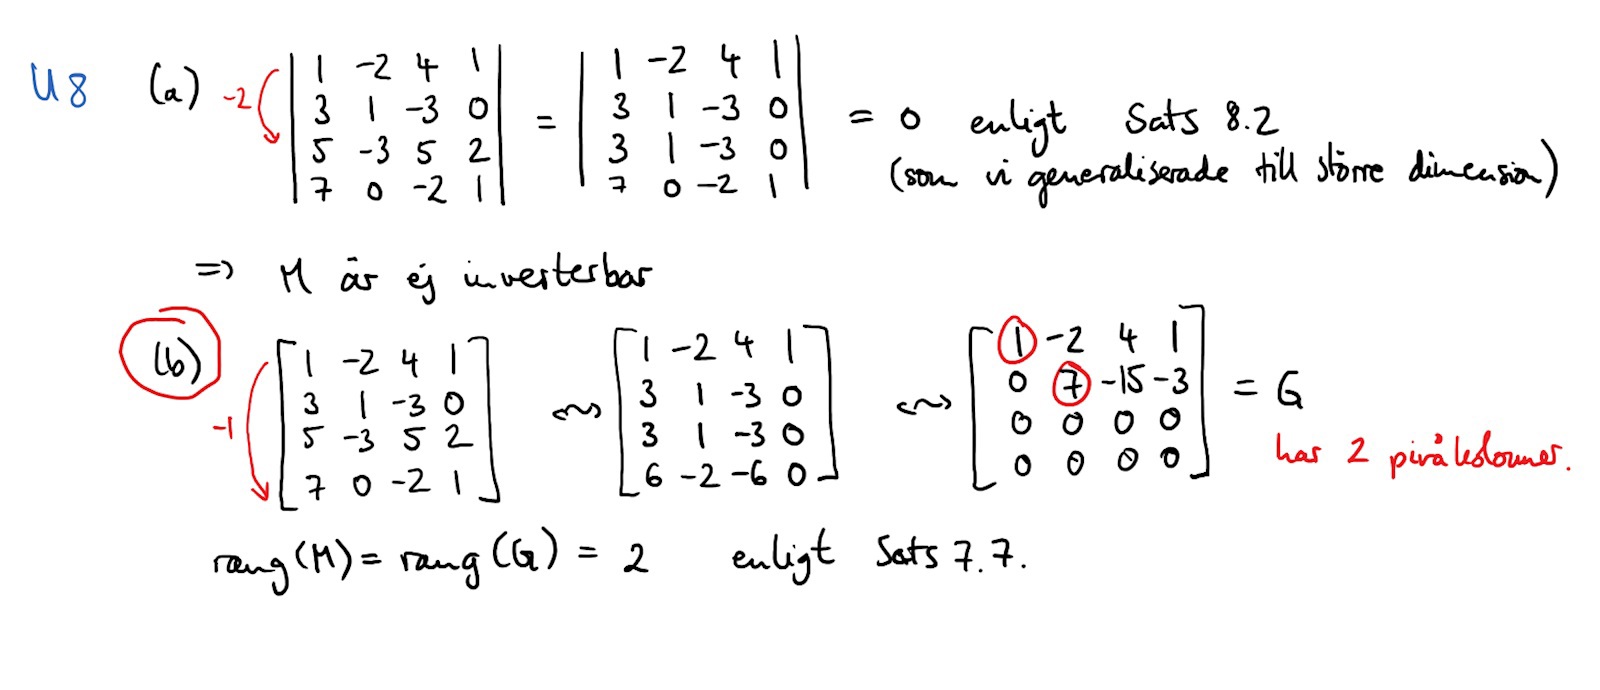 U8 (a) -2 | 1 -2 4 1 | = | 1 -2 4 1 | = 0 enligt Sats 8.2
| 3 1 -3 0 | | 3 1 -3 0 | (som vi generaliserade till större dimension)
| 5 -3 5 2 | | 3 1 -3 0 |
| 7 0 -2 1 | | 7 0 -2 1 |
=> M är ej inverterbar
(b) -1 [ 1 -2 4 1 ] ~> [ 1 -2 4 1 ] ~> [ 1 -2 4 1 ] = G
[ 3 1 -3 0 ] [ 3 1 -3 0 ] [ 0 7 -15 -3 ]
[ 5 -3 5 2 ] [ 3 1 -3 0 ] [ 0 0 0 0 ] har 2 pivåkolonner.
[ 7 0 -2 1 ] [ 6 -2 -6 0 ] [ 0 0 0 0 ]
rang(M) = rang(G) = 2 enligt Sats 7.7.